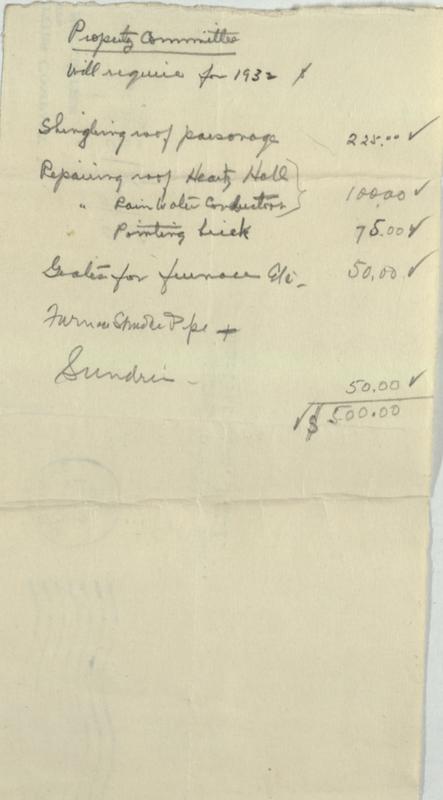 Property Committee
Will require for 1932 $
Shingling roof parsonage 225.00 ✓
Repairing roof Heartz Hall
" Rain Water Conductors } 100.00 ✓
Pointing brick 75.00 ✓
Grates for furnace Etc. 50.00 ✓
Furnace Smoke Pipe +
Sundries - 50.00 ✓
✓ $ 500.00